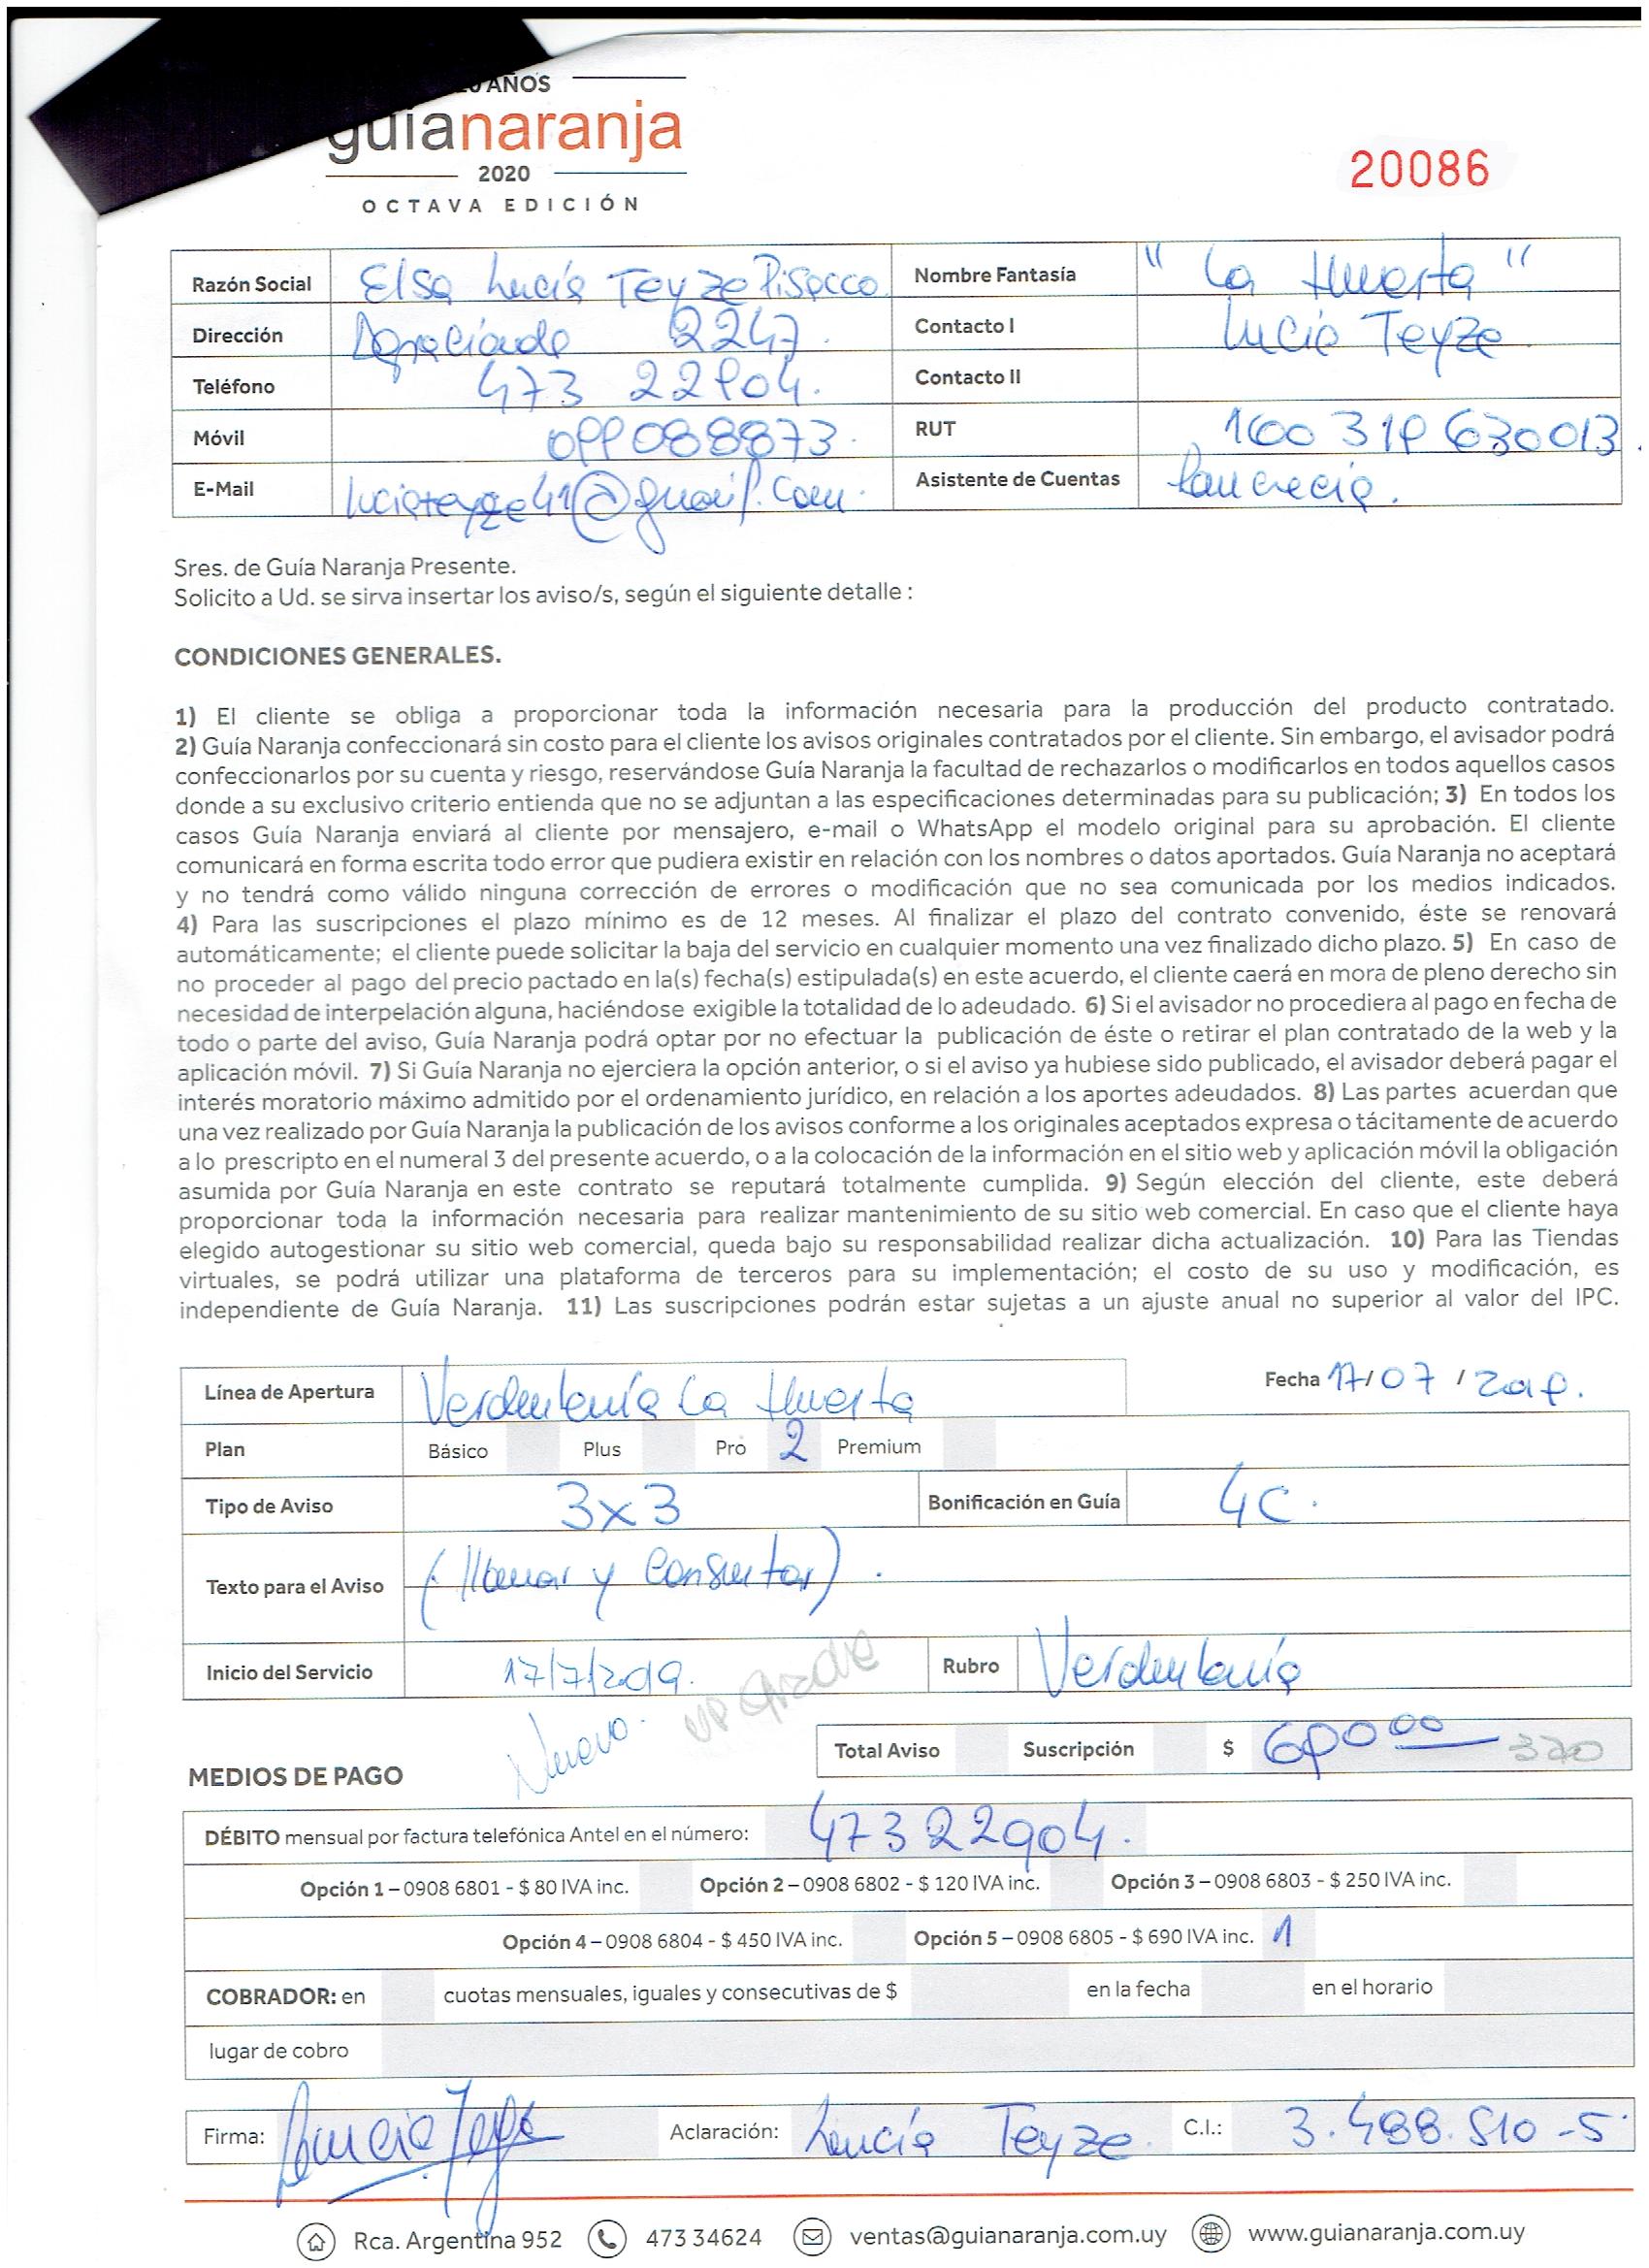 20 AÑOS
guíanaranja
2020
OCTAVA EDICIÓN
20086
Razón Social Elsa Lucía Teyze Pisacco Nombre Fantasía "La Huerta"
Dirección Agraciada 2247. Contacto I Lucía Teyze
Teléfono 473 22904. Contacto II
Móvil 099088873. RUT 160 319 630013.
E-Mail luciateyze41@gmail.com. Asistente de Cuentas
Sres. de Guía Naranja Presente.
Solicito a Ud. se sirva insertar los aviso/s, según el siguiente detalle :
CONDICIONES GENERALES.
1) El cliente se obliga a proporcionar toda la información necesaria para la producción del producto contratado.
2) Guía Naranja confeccionará sin costo para el cliente los avisos originales contratados por el cliente. Sin embargo, el avisador podrá
confeccionarlos por su cuenta y riesgo, reservándose Guía Naranja la facultad de rechazarlos o modificarlos en todos aquellos casos
donde a su exclusivo criterio entienda que no se adjuntan a las especificaciones determinadas para su publicación; 3) En todos los
casos Guía Naranja enviará al cliente por mensajero, e-mail o WhatsApp el modelo original para su aprobación. El cliente
comunicará en forma escrita todo error que pudiera existir en relación con los nombres o datos aportados. Guía Naranja no aceptará
y no tendrá como válido ninguna corrección de errores o modificación que no sea comunicada por los medios indicados.
4) Para las suscripciones el plazo mínimo es de 12 meses. Al finalizar el plazo del contrato convenido, éste se renovará
automáticamente; el cliente puede solicitar la baja del servicio en cualquier momento una vez finalizado dicho plazo. 5) En caso de
no proceder al pago del precio pactado en la(s) fecha(s) estipulada(s) en este acuerdo, el cliente caerá en mora de pleno derecho sin
necesidad de interpelación alguna, haciéndose exigible la totalidad de lo adeudado. 6) Si el avisador no procediera al pago en fecha de
todo o parte del aviso, Guía Naranja podrá optar por no efectuar la publicación de éste o retirar el plan contratado de la web y la
aplicación móvil. 7) Si Guía Naranja no ejerciera la opción anterior, o si el aviso ya hubiese sido publicado, el avisador deberá pagar el
interés moratorio máximo admitido por el ordenamiento jurídico, en relación a los aportes adeudados. 8) Las partes acuerdan que
una vez realizado por Guía Naranja la publicación de los avisos conforme a los originales aceptados expresa o tácitamente de acuerdo
a lo prescripto en el numeral 3 del presente acuerdo, o a la colocación de la información en el sitio web y aplicación móvil la obligación
asumida por Guía Naranja en este contrato se reputará totalmente cumplida. 9) Según elección del cliente, este deberá
proporcionar toda la información necesaria para realizar mantenimiento de su sitio web comercial. En caso que el cliente haya
elegido autogestionar su sitio web comercial, queda bajo su responsabilidad realizar dicha actualización. 10) Para las Tiendas
virtuales, se podrá utilizar una plataforma de terceros para su implementación; el costo de su uso y modificación, es
independiente de Guía Naranja. 11) Las suscripciones podrán estar sujetas a un ajuste anual no superior al valor del IPC.
Línea de Apertura Verdulería La Huerta Fecha 17/07/2019.
Plan Básico Plus Pro 2 Premium
Tipo de Aviso 3x3 Bonificación en Guía 4C.
Texto para el Aviso (llamar y consultar).
Inicio del Servicio 17/7/2019. Rubro Verdulería
Nuevo. UPGRADE
Total Aviso Suscripción $ 690 00 320
MEDIOS DE PAGO
DÉBITO mensual por factura telefónica Antel en el número: 47322904.
Opción 1 – 0908 6801 - $ 80 IVA inc. Opción 2 – 0908 6802 - $ 120 IVA inc. Opción 3 – 0908 6803 - $ 250 IVA inc.
Opción 4 – 0908 6804 - $ 450 IVA inc. Opción 5 – 0908 6805 - $ 690 IVA inc. 1
COBRADOR: en cuotas mensuales, iguales y consecutivas de $ en la fecha en el horario
lugar de cobro
Firma: Lucía Teyze Aclaración: Lucía Teyze. C.I.: 3.488.510-5
Rca. Argentina 952 473 34624 ventas@guianaranja.com.uy www.guianaranja.com.uy